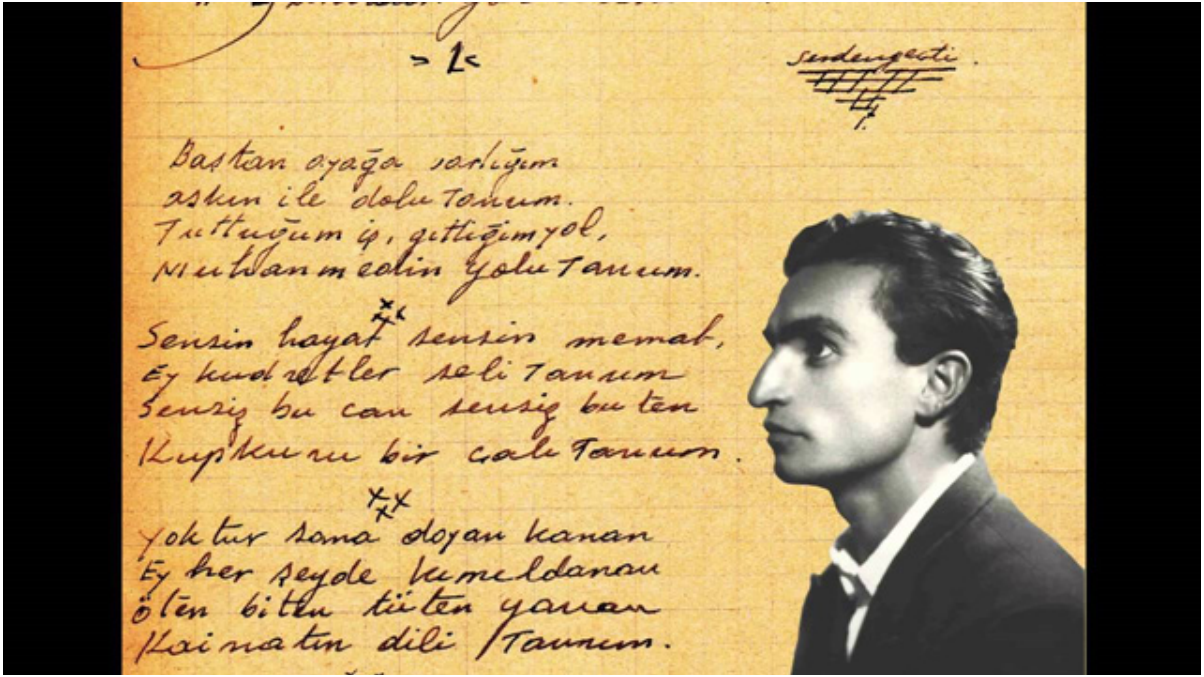 > 1 <
Serdengeçti
Baştan ayağa varlığım
aşkın ile dolu Tanrım.
Tuttuğum iş, gittiğim yol,
Muhammedin yolu Tanrım.
Sensin hayat sensin memat,
Ey kudretler seli Tanrım
Sensiz bu can sensiz bu ten
Kupkuru bir çalı Tanrım.
Yoktur sana doyan kanan
Ey her şeyde kımıldanan
Öten biten tüten yanan
Kainatın dili Tanrım.